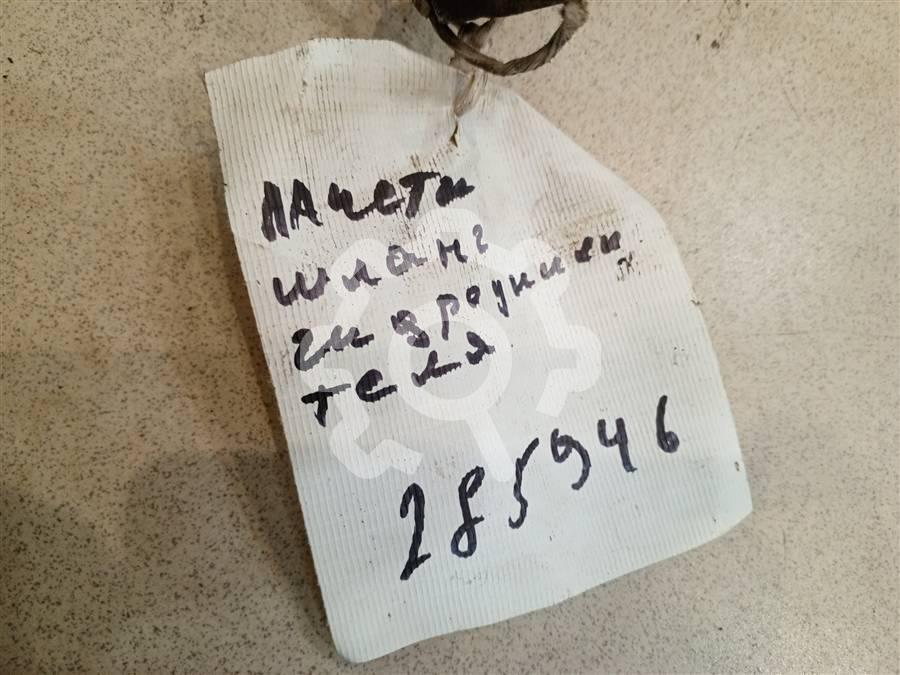 лачети
шланг
гидроусили
теля
285946